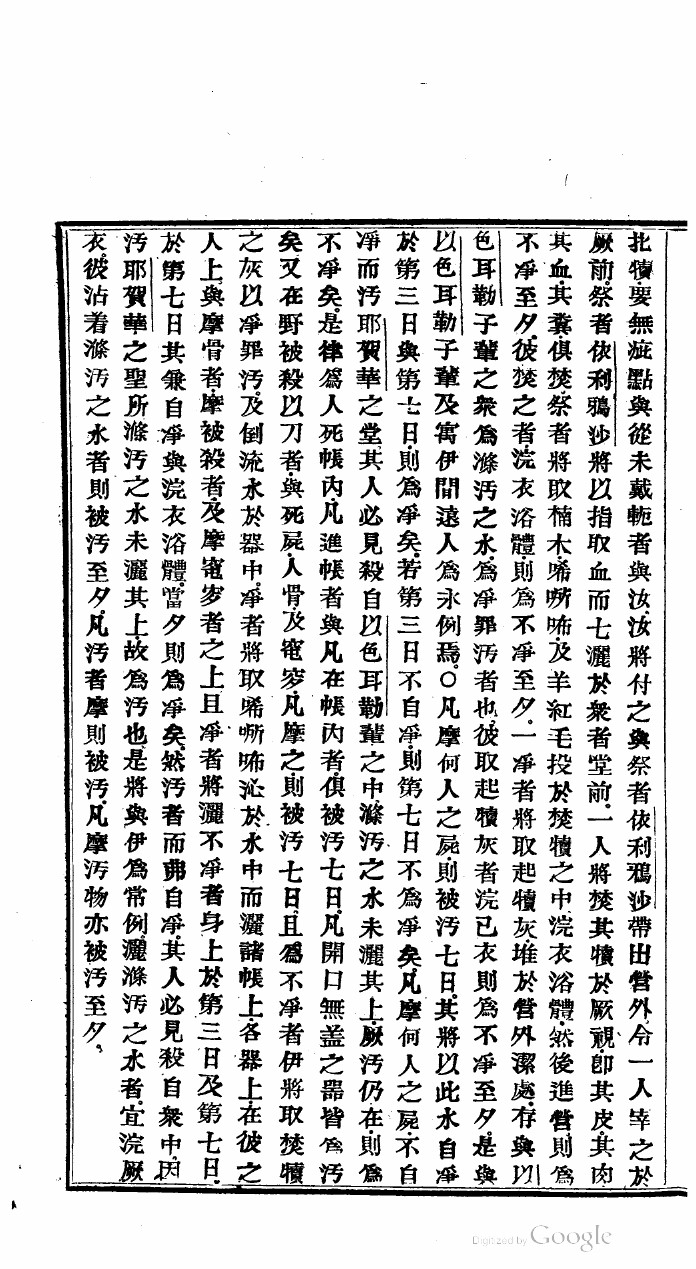 牝犢要無疵點與從未戴軛者與汝汝將付之與祭者依利鴉沙帶出營外令一人宰之於
厥前祭者依利鴉沙將以指取血而七灑於衆者堂前一人將焚其犢於厥視卽其皮其肉
其血其糞俱焚祭者將取楠木唏嘶咘及羊紅毛投於焚犢之中浣衣浴體然後進營則爲
不凈至夕彼焚之者浣衣浴體則爲不凈至夕一凈者將取起犢灰堆於營外潔處存與以
色耳勒子輩之衆爲滌汚之水爲凈罪汚者也彼取起犢灰者浣己衣則爲不凈至夕是與
以色耳勒子輩及寓伊間遠人爲永例焉○凡摩何人之屍則被汚七日其將以此水自凈
於第三日與第七日則爲凈矣若第三日不自凈則第七日不爲凈矣凡摩何人之屍不自
凈而汚耶賀華之堂其人必見殺自以色耳勒輩之中滌汚之水未灑其上厥汚仍在則爲
不凈矣是律爲人死帳內凡進帳者與凡在帳內者俱被汚七日凡開口無盖之器皆爲汚
矣又在野被殺以刀者與死屍人骨及窀穸凡摩之則被汚七日且爲不凈者伊將取焚犢
之灰以凈罪汚及倒流水於器中凈者將取唏嘶咘沁於水中而灑諸帳上各器上在彼之
人上與摩骨者摩被殺者及摩窀穸者之上且凈者將灑不凈者身上於第三日及第七日
於第七日其兼自凈與浣衣浴體當夕則爲凈矣然汚者而弗自凈其人必見殺自衆中因
汚耶賀華之聖所滌汚之水未灑其上故爲汚也是將與伊爲常例灑滌汚之水者宜浣厥
衣彼沾着滌汚之水者則被汚至夕凡汚者摩則被汚凡摩汚物亦被汚至夕
Digitized by Google